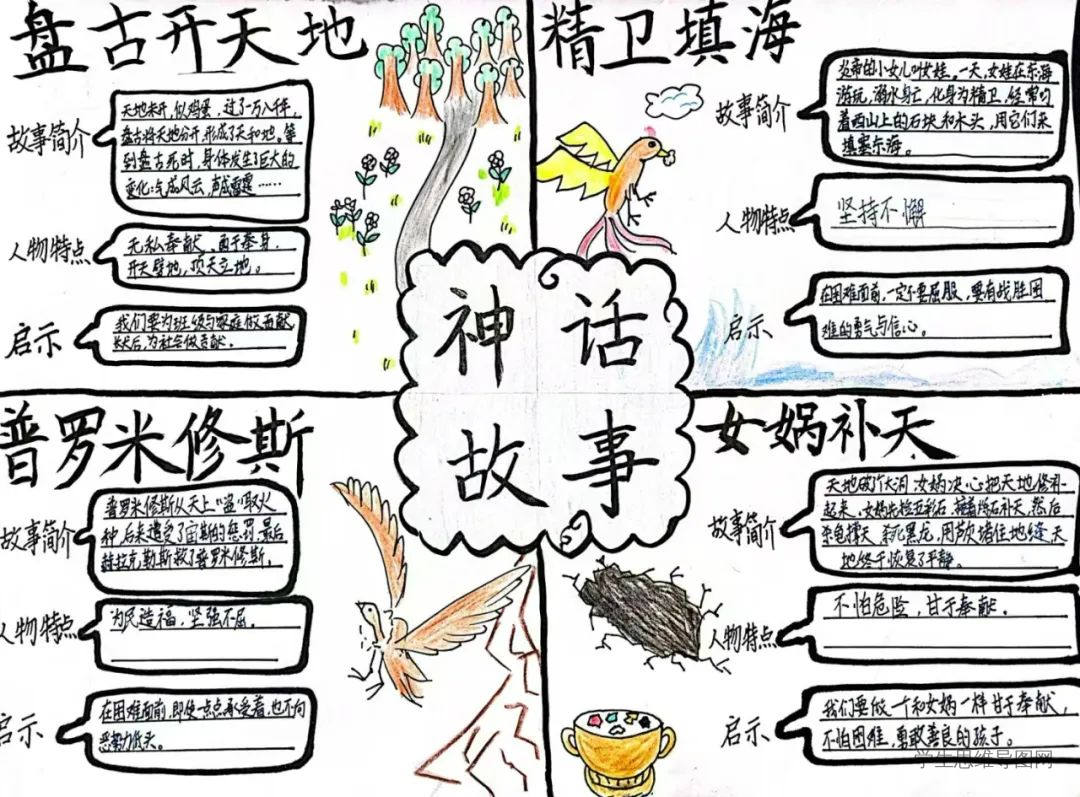 盘古开天地
故事简介
天地未开,似鸡蛋,过了一万八千年,
盘古将天地分开,形成了天和地。等
到盘古死时,身体发生了巨大的
变化:气成风云,声成雷霆……
人物特点
无私奉献、勇于奉身、
开天辟地,顶天立地。
启示
我们要为班级与家庭做贡献
然后,为社会做贡献。
精卫填海
故事简介
炎帝的小女儿叫女娃,一天,女娃在东海
游玩,溺水身亡,化身为精卫,经常叼
着西山上的石块和木头,用它们来
填塞东海。
人物特点
坚持不懈
启示
在困难面前,一定不要屈服,要有战胜困
难的勇气与信心。
神话
故事
普罗米修斯
故事简介
普罗米修斯从天上"盗"取火
种,后来遭受了宙斯的惩罚,最后
赫拉克勒斯救了普罗米修斯。
人物特点
为民造福,坚强不屈。
启示
在困难面前,即使一点点承受着,也不向
恶势力低头。
女娲补天
故事简介
天地破个大洞,女娲决心把天地修补
起来,女娲先捡五彩石,接着炼石补天,然后
杀龟撑天,杀死黑龙,用芦灰堵住地缝,天
地终于恢复了平静。
人物特点
不怕危险,甘于奉献。
启示
我们要做一个和女娲一样甘于奉献,
不怕困难,勇敢善良的孩子。
学生思维导图网